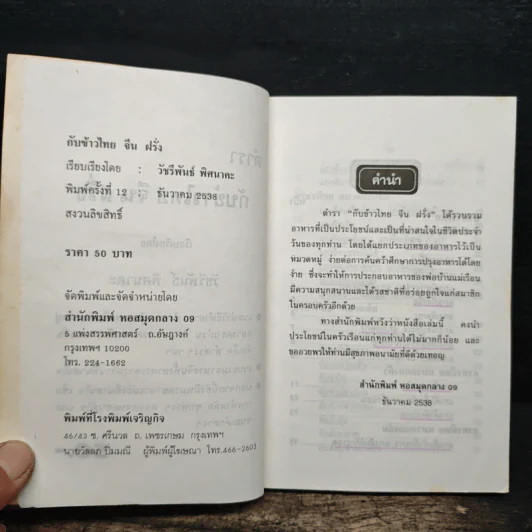 กับข้าวไทย จีน ฝรั่ง
เรียบเรียงโดย : วัชรีพันธ์ พิศนาคะ
พิมพ์ครั้งที่ 12 : ธันวาคม 2538
สงวนลิขสิทธิ์
ราคา 50 บาท
จัดพิมพ์และจัดจำหน่ายโดย
สำนักพิมพ์ หอสมุดกลาง 09
5 แพ่งสรรพศาสตร์ ถ.อัษฎางค์
กรุงเทพฯ 10200
โทร. 224-1662
พิมพ์ที่โรงพิมพ์เจริญกิจ
46/43 ซ. ศรีนวล ถ. เพชรเกษม กรุงเทพฯ
ปิ่มมณี ผู้พิมพ์ผู้โฆษณา โทร.466-2603
คำนำ
ตำรา "กับข้าวไทย จีน ฝรั่ง" ได้รวบรวม
อาหารที่เป็นประโยชน์และเป็นที่น่าสนใจในชีวิตประจำ
วันของทุกท่าน โดยได้แยกประเภทของอาหารไว้เป็น
หมวดหมู่ ง่ายต่อการค้นคว้าศึกษาการปรุงอาหารได้โดย
ง่าย ซึ่งจะทำให้การประกอบอาหารของพ่อบ้านแม่เรือน
มีความสนุกสนานและได้รสชาติที่อร่อยถูกใจแก่สมาชิก
ในครอบครัวอีกด้วย
ทางสำนักพิมพ์หวังว่าหนังสือเล่มนี้ คงนำ
ประโยชน์ในครัวเรือนแก่ทุกท่านได้ไม่มากก็น้อย และ
ขออวยพรให้ท่านมีสุขภาพอนามัยที่ดีด้วยเทอญ
สำนักพิมพ์ หอสมุดกลาง 09
ธันวาคม 2538